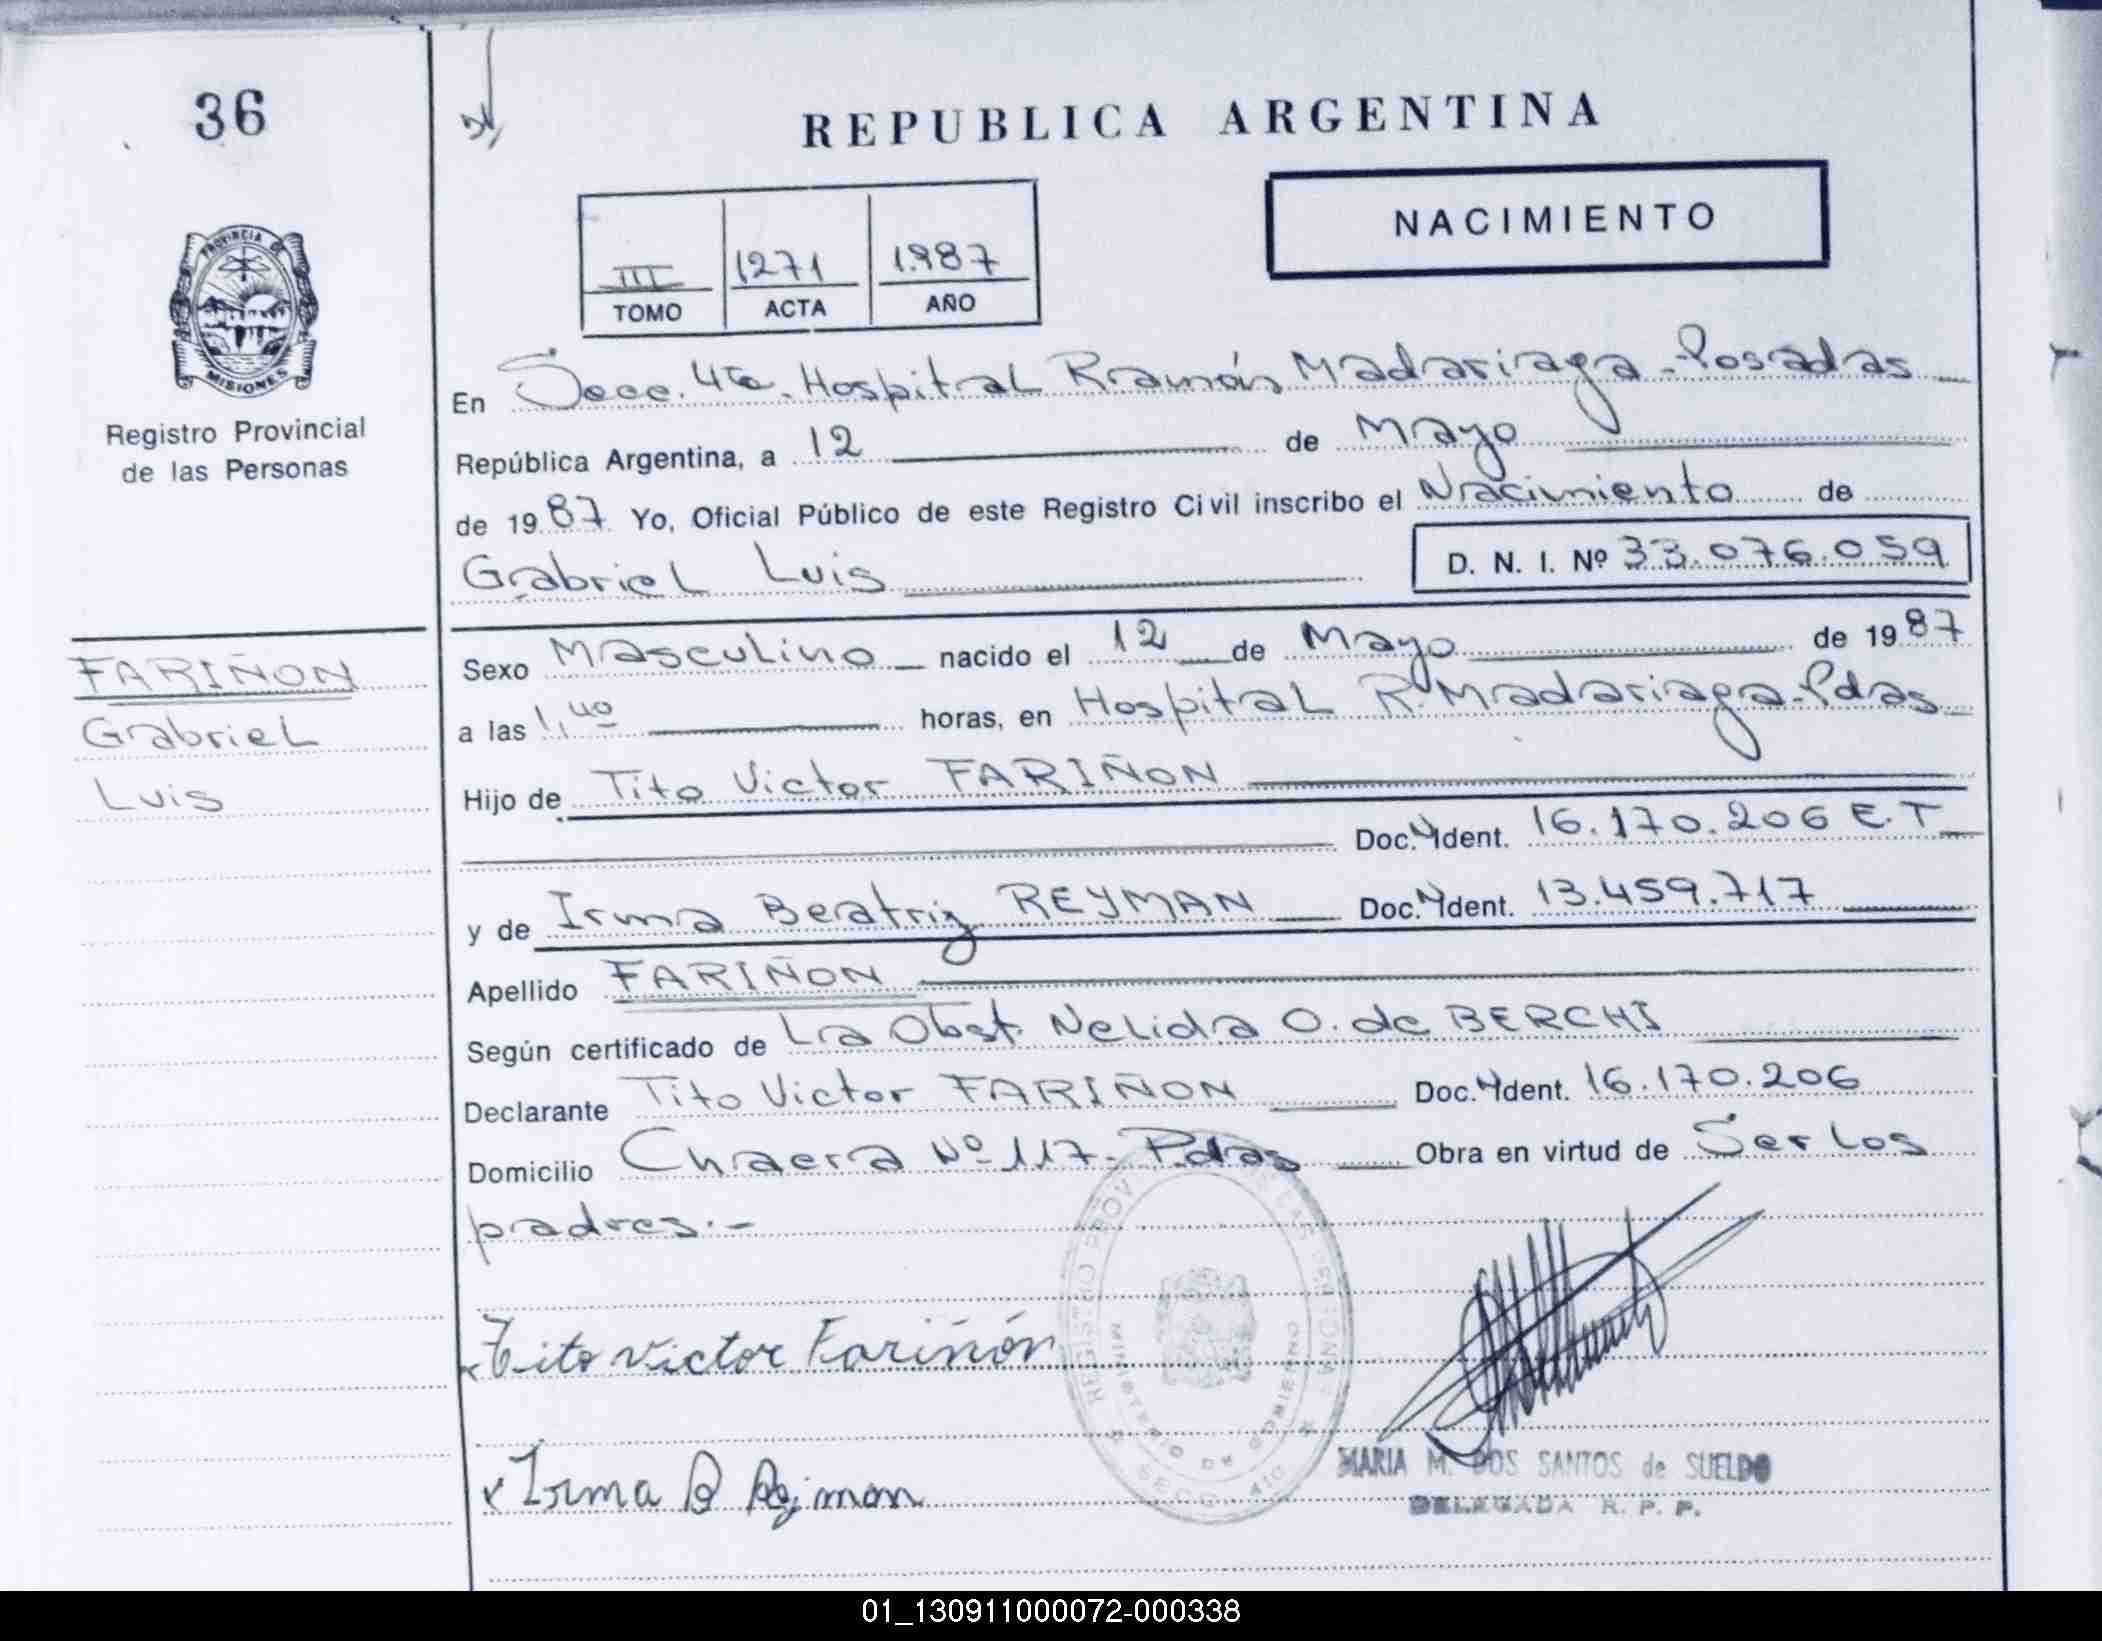 36
REPUBLICA ARGENTINA
NACIMIENTO
III 1271 1.987
TOMO ACTA AÑO
PROVINCIA DE
MISIONES
Registro Provincial
de las Personas
En Secc. 4ta. Hospital Ramón Madariaga - Posadas
República Argentina, a 12 de Mayo
de 1987 Yo, Oficial Público de este Registro Civil inscribo el Nacimiento de
Gabriel Luis D. N. I. Nº 33.076.059
FARIÑON
Gabriel
Luis
Sexo Masculino nacido el 12 de Mayo de 1987
a las 1,40 horas, en Hospital R. Madariaga - Pdas
Hijo de Tito Victor FARIÑON
Doc. Ident. 16.170.206 E.T
y de Irma Beatriz REYMAN Doc. Ident. 13.459.717
Apellido FARIÑON
Según certificado de La Obst. Nelida O. de BERCHI
Declarante Tito Victor FARIÑON Doc. Ident. 16.170.206
Domicilio Chacra Nº 117 - Pdas Obra en virtud de Ser los
padres.-
REGISTRO PROV. DE LAS PERSONAS
MINISTERIO DE GOBIERNO
Tito Victor Fariñón
Irma B Rejman
MARIA M. DOS SANTOS de SUELDO
DELEGADA R. P. P.
01_130911000072-000338